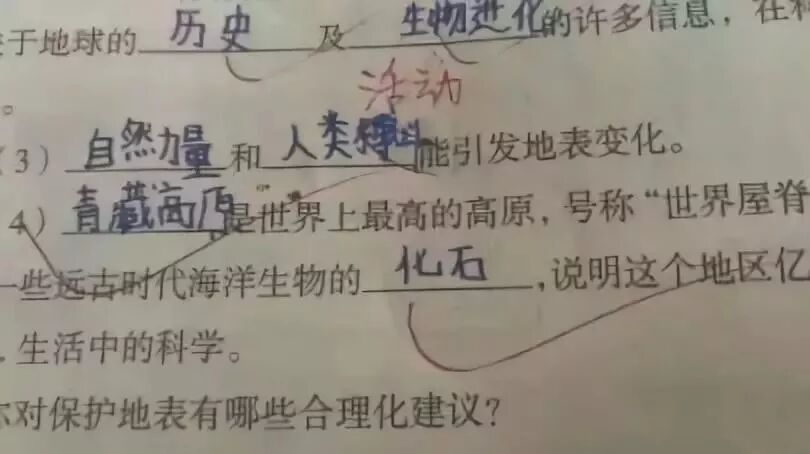 于地球的历史及生物进化的许多信息，在
活动
。
（3）自然力量和人类能引发地表变化。
4）青藏高原是世界上最高的高原，号称“世界屋脊
一些远古时代海洋生物的化石，说明这个地区亿
.生活中的科学。
你对保护地表有哪些合理化建议？